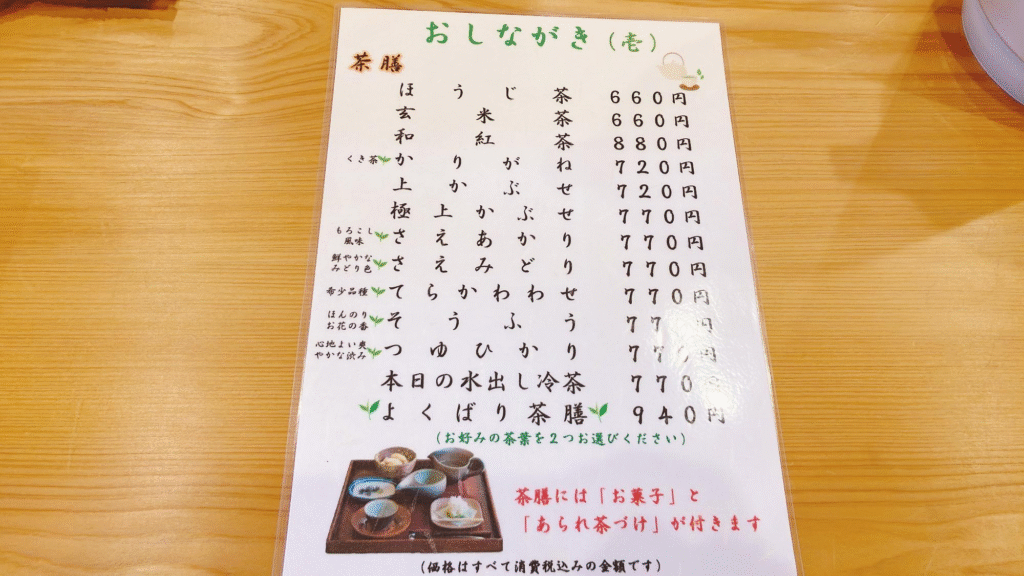 おしながき(壱)
茶膳
ほうじ茶 660円
玄米茶 660円
和紅茶 880円
くき茶 かりがね 720円
上かぶせ 720円
極上かぶせ 770円
もろこし
風味
さえあかり 770円
鮮やかな
みどり色
さえみどり 770円
希少品種 てらかわわせ 770円
ほんのり
お花の香
そうふう 770円
心地よい爽
やかな渋み
つゆひかり 770円
本日の水出し冷茶 770円
よくばり茶膳 940円
(お好みの茶葉を2つお選びください)
茶膳には「お菓子」と
「あられ茶づけ」が付きます
(価格はすべて消費税込みの金額です)